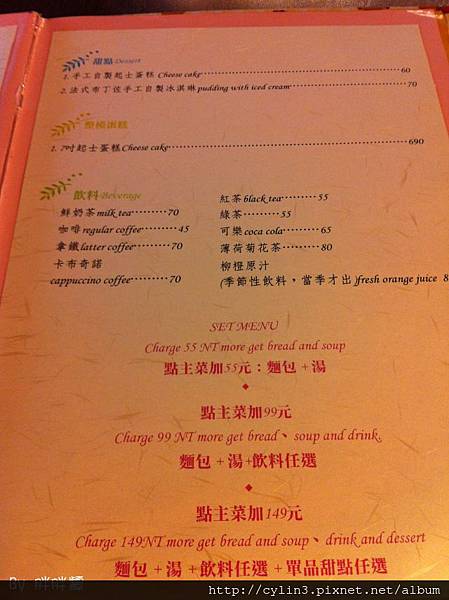 甜點 Dessert
1. 手工自製起士蛋糕 Cheese cake 60
2. 法式布丁佐手工自製冰淇淋 pudding with iced cream 70
整模蛋糕
1. 7吋起士蛋糕 Cheese cake 690
飲料 Beverage
鮮奶茶 milk tea 70
咖啡 regular coffee 45
拿鐵 latter coffee 70
卡布奇諾
cappuccino coffee 70
紅茶 black tea 55
綠茶 55
可樂 coca cola 65
薄荷菊花茶 80
柳橙原汁
(季節性飲料，當季才出)fresh orange juice 8
SET MENU
Charge 55 NT more get bread and soup
點主菜加55元：麵包 + 湯
點主菜加99元
Charge 99 NT more get bread、soup and drink,
麵包 + 湯+飲料任選
點主菜加149元
Charge 149NT more get bread and soup、drink and dessert
麵包 + 湯 +飲料任選 +單品甜點任選
By 胖胖
http://cylin3.pixnet.net/album